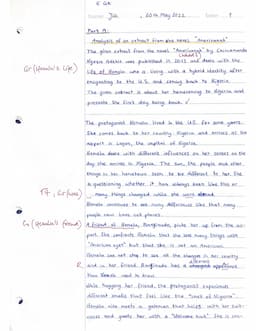 E GK
20th May 2022
Part A:
Analysis of an extract from the novel "Americanah"
The given extract from the novel "Americanah" by Chimamanda
Ngozi Adichie was published in 2013 and deals with the
life of Ifemelu who is living with a hybrid identity after
emigrating to the U.S. and coming back to Nigeria.
The given extract is about her homecoming to Nigeria and
presents the first day being back. ✓
The protagonist Ifemelu lived in the U.S. for some years.
She comes back to her country Nigeria and arrives at the
airport in Lagos, the capital of Nigeria.
Ifemelu deals with different influences on her senses on the
day she arrives in Nigeria. The sun, the people and other
things in her hometown seem to be different to her. She
is questioning whether it has always been like this or
many things changed while she
Ifemelu continues to see many differences like that many
people now
A friend of Ifemelu, Ranyinudo, picks her up from the air-
port. She confronts Ifemelu that she sees many things with
"American eyes" but that she is not an American.
Ifemelu can not stop to see all the changes in her country
and in her friend. Ranyinudo has a different
than Ifemelu used to know.
While hugging her friend, the protagonist experiences
different smells that feel like the "smell of Nigeria".
Ifemelu also meets a gateman that helps with her suit-
cases and greets her with a "Welcome aunt". She is